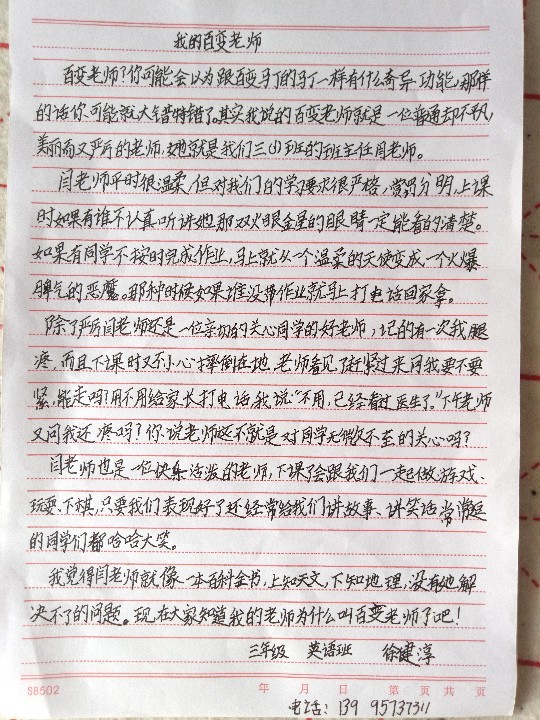 我的百变老师
百变老师?你可能会以为跟百变马丁的马丁一样有什么奇异功能,那样
的话你可能就大错特错了。其实我说的百变老师就是一位普通却不凡,
美丽而又严厉的老师,她就是我们三(1)班的班主任闫老师。
闫老师平时很温柔,但对我们的学习要求很严格,赏罚分明,上课
时如果有谁不认真听讲她那双火眼金星的眼睛一定能看的清楚。
如果有同学不按时完成作业,马上就从一个温柔的天使变成一个火爆
脾气的恶魔。那种时候如果谁没带作业就马上打电话回家拿。
除了严厉闫老师还是一位亲切的关心同学的好老师,记的有一次我腿
疼,而且下课时又不小心摔倒在地,老师看见了赶紧过来问我要不要
紧,能走吗?用不用给家长打电话,我说:“不用,已经看过医生了。”下午老师
又问我还疼吗?你说老师这不就是对同学无微不至的关心吗?
闫老师也是一位快乐活泼的老师,下课了会跟我们一起做游戏、
玩耍、下棋,只要我们表现好了还经常给我们讲故事、讲笑话常常逗
的同学们都哈哈大笑。
我觉得闫老师就像一本百科全书,上知天文,下知地理,没有她解
决不了的问题。现在大家知道我的老师为什么叫百变老师了吧!
三年级 英语班 徐健淳
S8502 年 月 日 第 页 共 页
电话:139 95737311